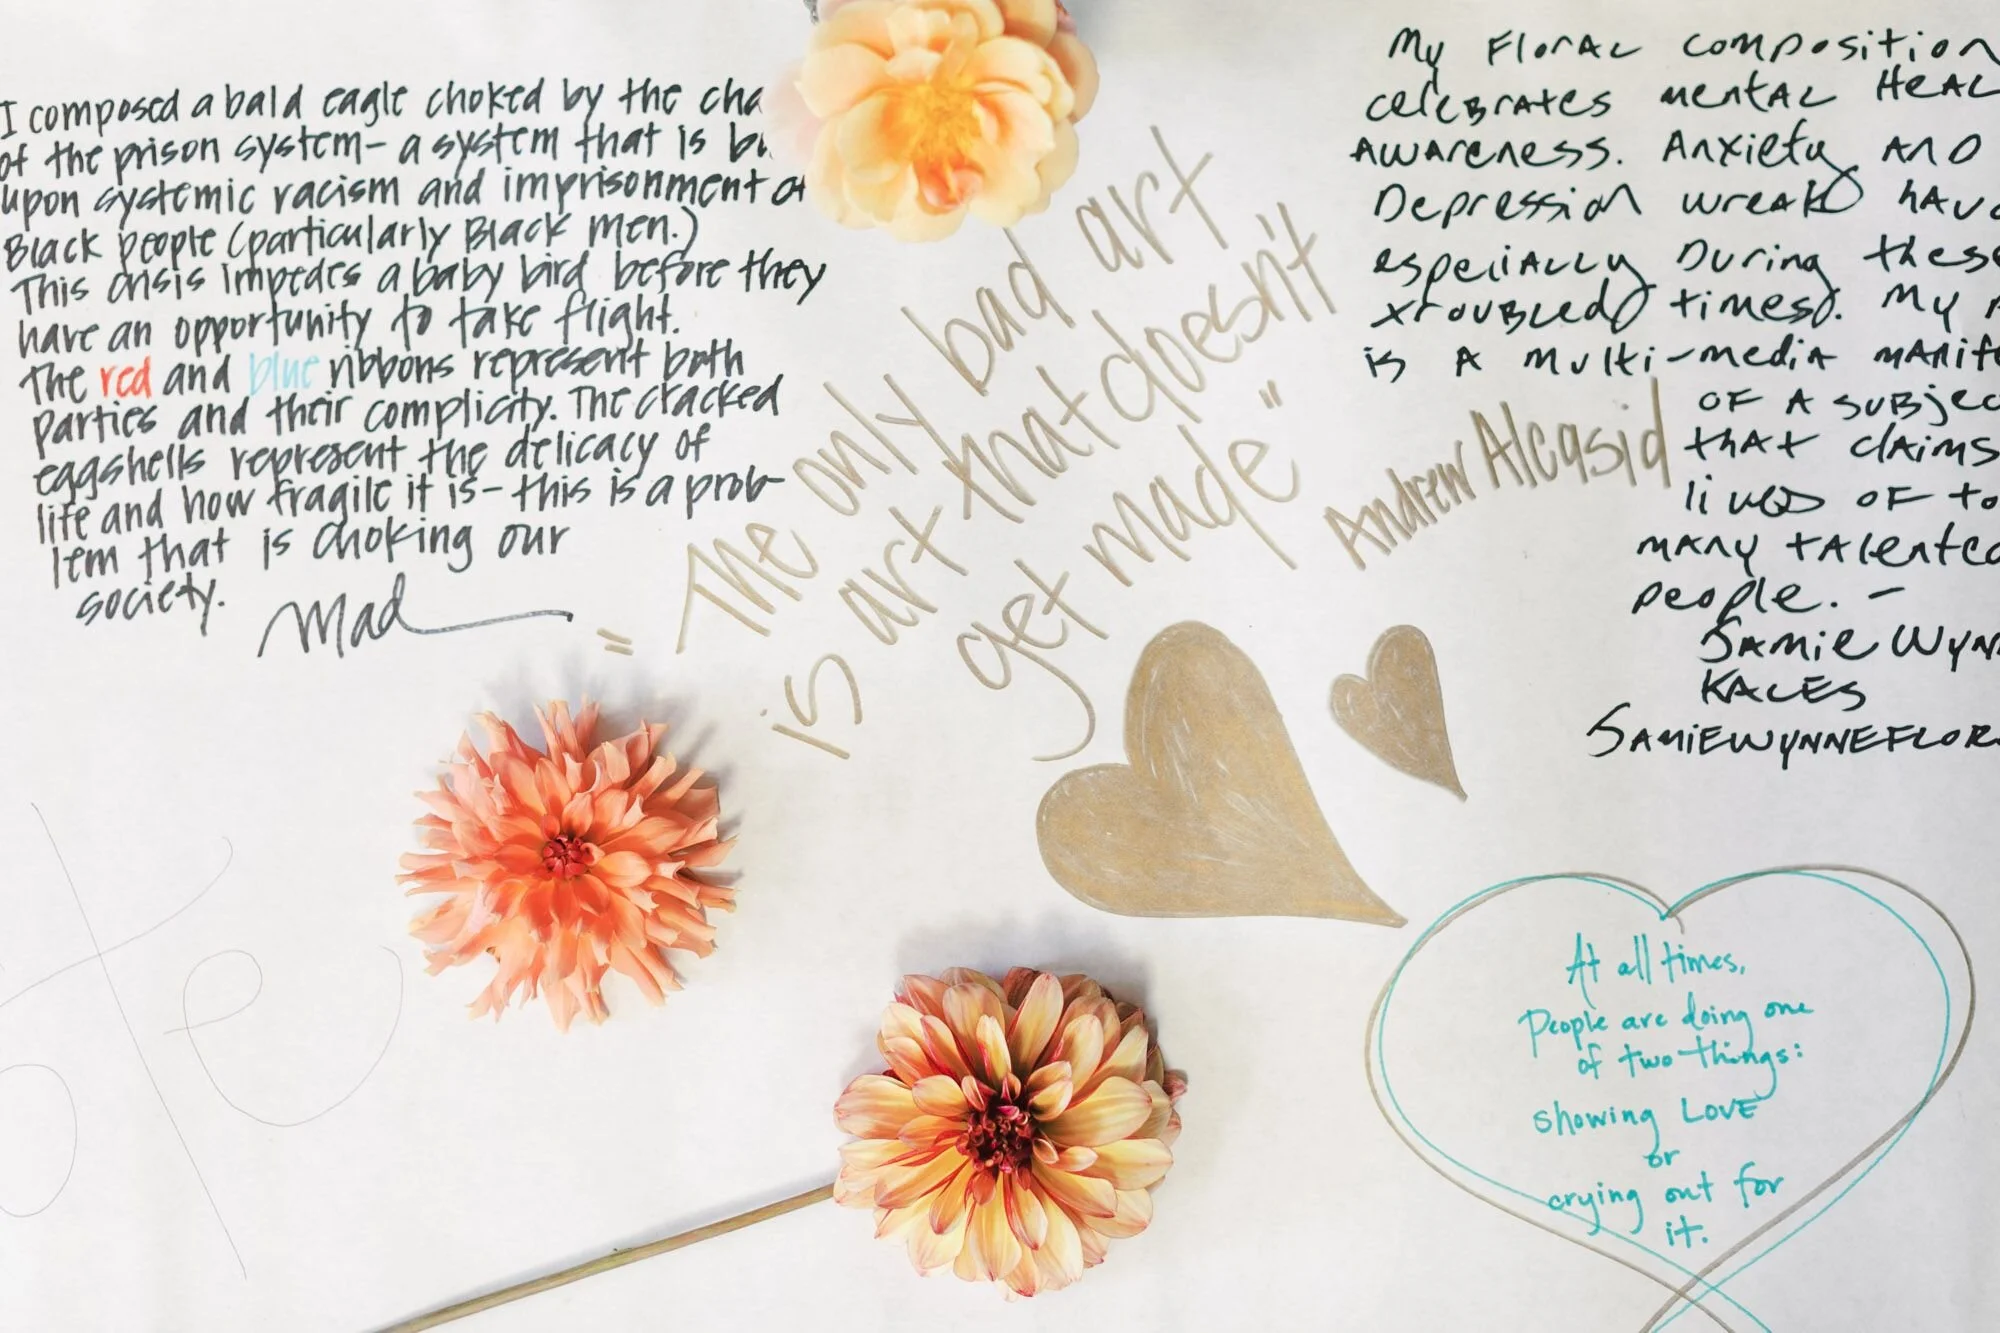 I composed a bald eagle choked by the cha
of the prison system- a system that is bu
upon systemic racism and imprisonment of
Black people (particularly Black men.)
This crisis impedes a baby bird before they
have an opportunity to take flight.
The red and blue ribbons represent both
parties and their complicity. The cracked
eggshells represent the delicacy of
life and how fragile it is - this is a prob-
lem that is choking our
society.
Mad
"The only bad art
is art that doesn't
get made"
Andrew Alcasid
My Floral composition
celebrates mental Heal
Awareness. Anxiety AND
Depression wreak havo
especially During these
troubled times. My A
is A multi-media manife
OF A subjec
that claims
lives OF to
many talented
people. -
Samie Wynn
KALES
SAMIEWYNNEFLOR
At all times,
People are doing one
of two things:
showing LOVE
or
crying out for
it.